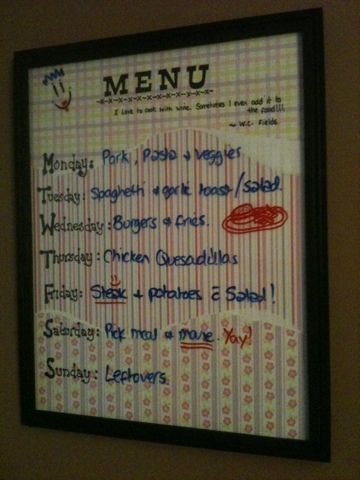 MENU
I love to cook with wine. Sometimes I even add it to
the food!!!
~ W.C. Fields
Monday: Pork, Pasta + veggies
Tuesday: Spaghetti + garlic toast/salad.
Wednesday: Burgers + fries.
Thursday: Chicken Quesadillas
Friday: Steak + potatoes c̄ Salad!
Saturday: Pick meal + movie. Yay!
Sunday: Leftovers.